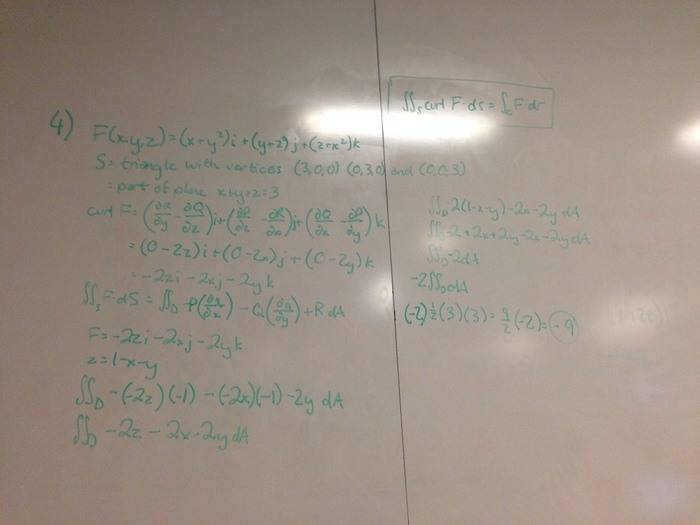 4) F(x,y,z)=(x+y²)i+(y+z²)j+(z+x²)k
S= triangle with vertices (3,0,0) (0,3,0) and (0,0,3)
= part of plane x+y+z=3
curl F= (∂R/∂y - ∂Q/∂z)i+(∂P/∂z - ∂R/∂x)j+(∂Q/∂x - ∂P/∂y)k
= (0-2z)i+(0-2x)j+(0-2y)k
= -2zi-2xj-2yk
∬_S F·dS = ∬_D -P(∂g/∂x) - Q(∂g/∂y) + R dA
F=-2zi-2xj-2yk
z=1-x-y
∬_D -(-2z)(-1) - (-2x)(-1) -2y dA
∬_D -2z - 2x - 2y dA
∬_S curl F·ds = ∫_C F·dr
∬_D -2(1-x-y)-2x-2y dA
∬_D -2+2x+2y-2x-2y dA
∬_D -2dA
-2∬_D dA
(-2)½(3)(3)= 9/2(-2)= -9